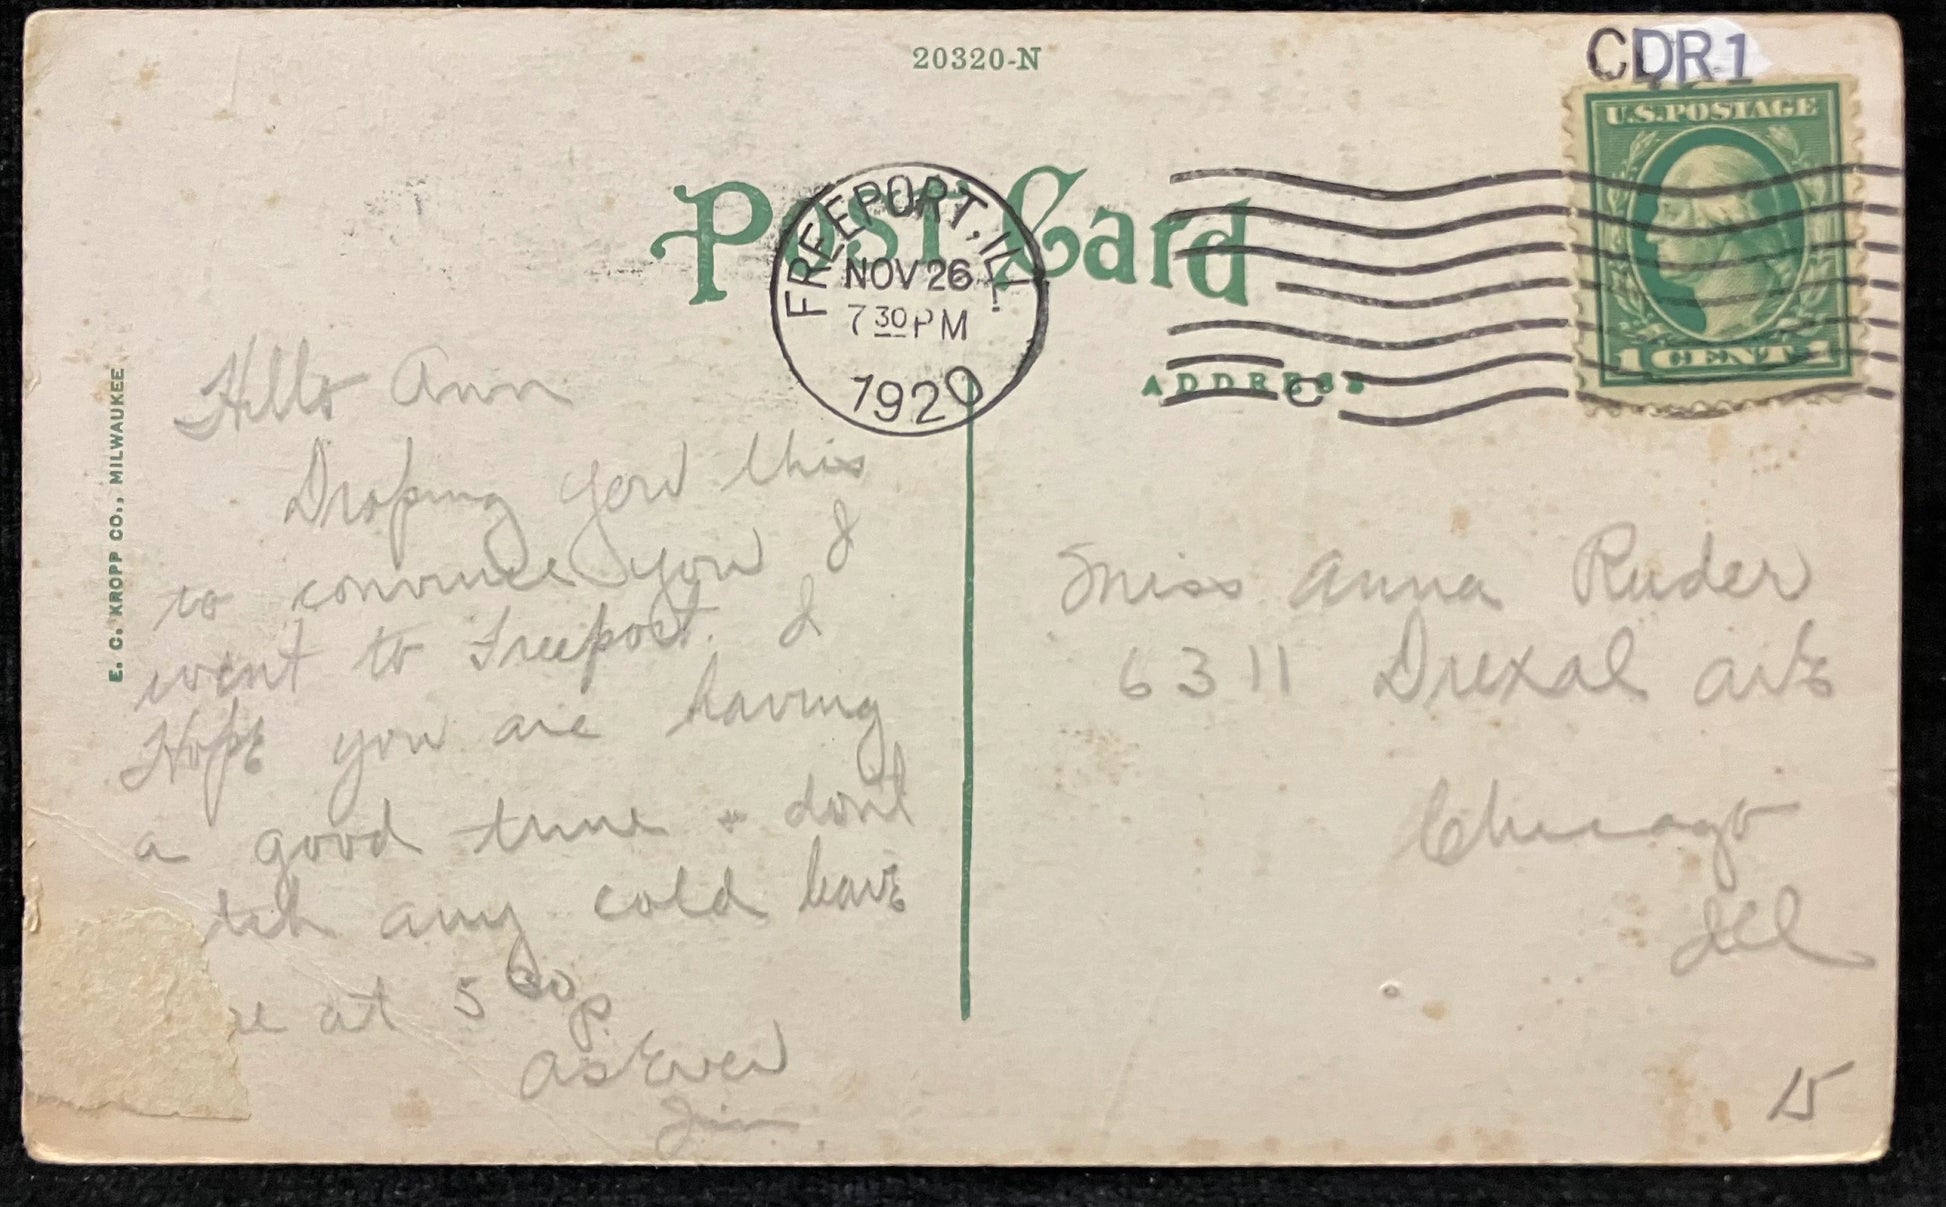 20320-N
CDR1
U.S. POSTAGE
1 CENT 1
Post Card
FREEPORT, ILL.
NOV 26
7 30 PM
1920
C
ADDRESS
E. C. KROPP CO., MILWAUKEE
Hello Ann
Droping you this
to convince you I
went to Freeport. I
Hope you are having
a good time & don't
tch any cold leave
re at 5 30 P.
As Ever
Jim
Miss Anna Ruder
6311 Drexal Ave
Chicago
Ill
15